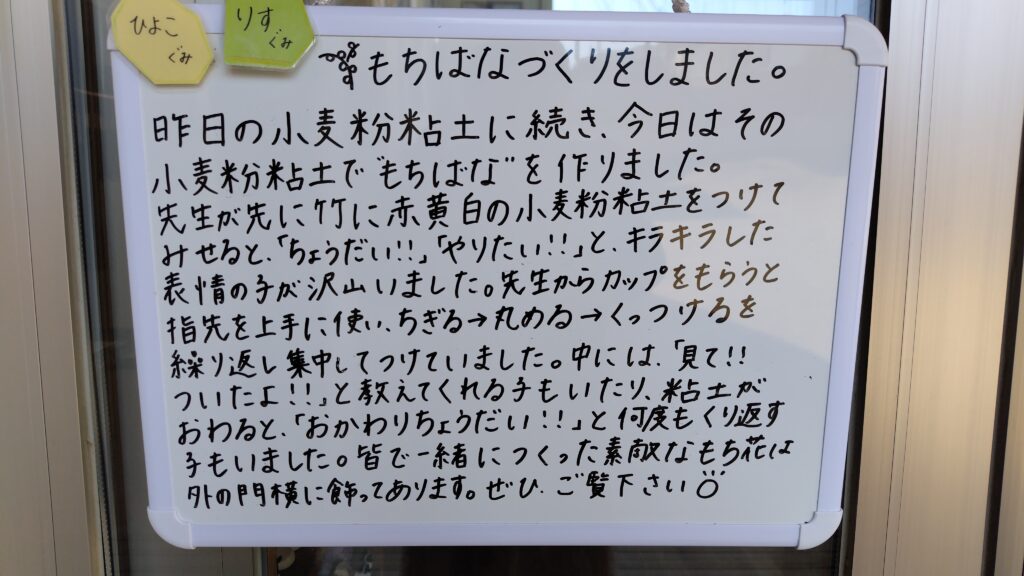 ひよこ
ぐみ
りす
ぐみ
もちばなづくりをしました。
昨日の小麦粉粘土に続き、今日はその
小麦粉粘土で"もちばな"を作りました。
先生が先に竹に赤黄白の小麦粉粘土をつけて
みせると、「ちょうだい!!」「やりたい!!」と、キラキラした
表情の子が沢山いました。先生からカップをもらうと
指先を上手に使い、ちぎる→丸める→くっつけるを
繰り返し集中してつけていました。中には、「見て!!
ついたよ!!」と教えてくれる子もいたり、粘土が
おわると、「おかわりちょうだい!!」と何度もくり返す
子もいました。皆で一緒につくった素敵なもち花は
外の門横に飾ってあります。ぜひ、ご覧下さい